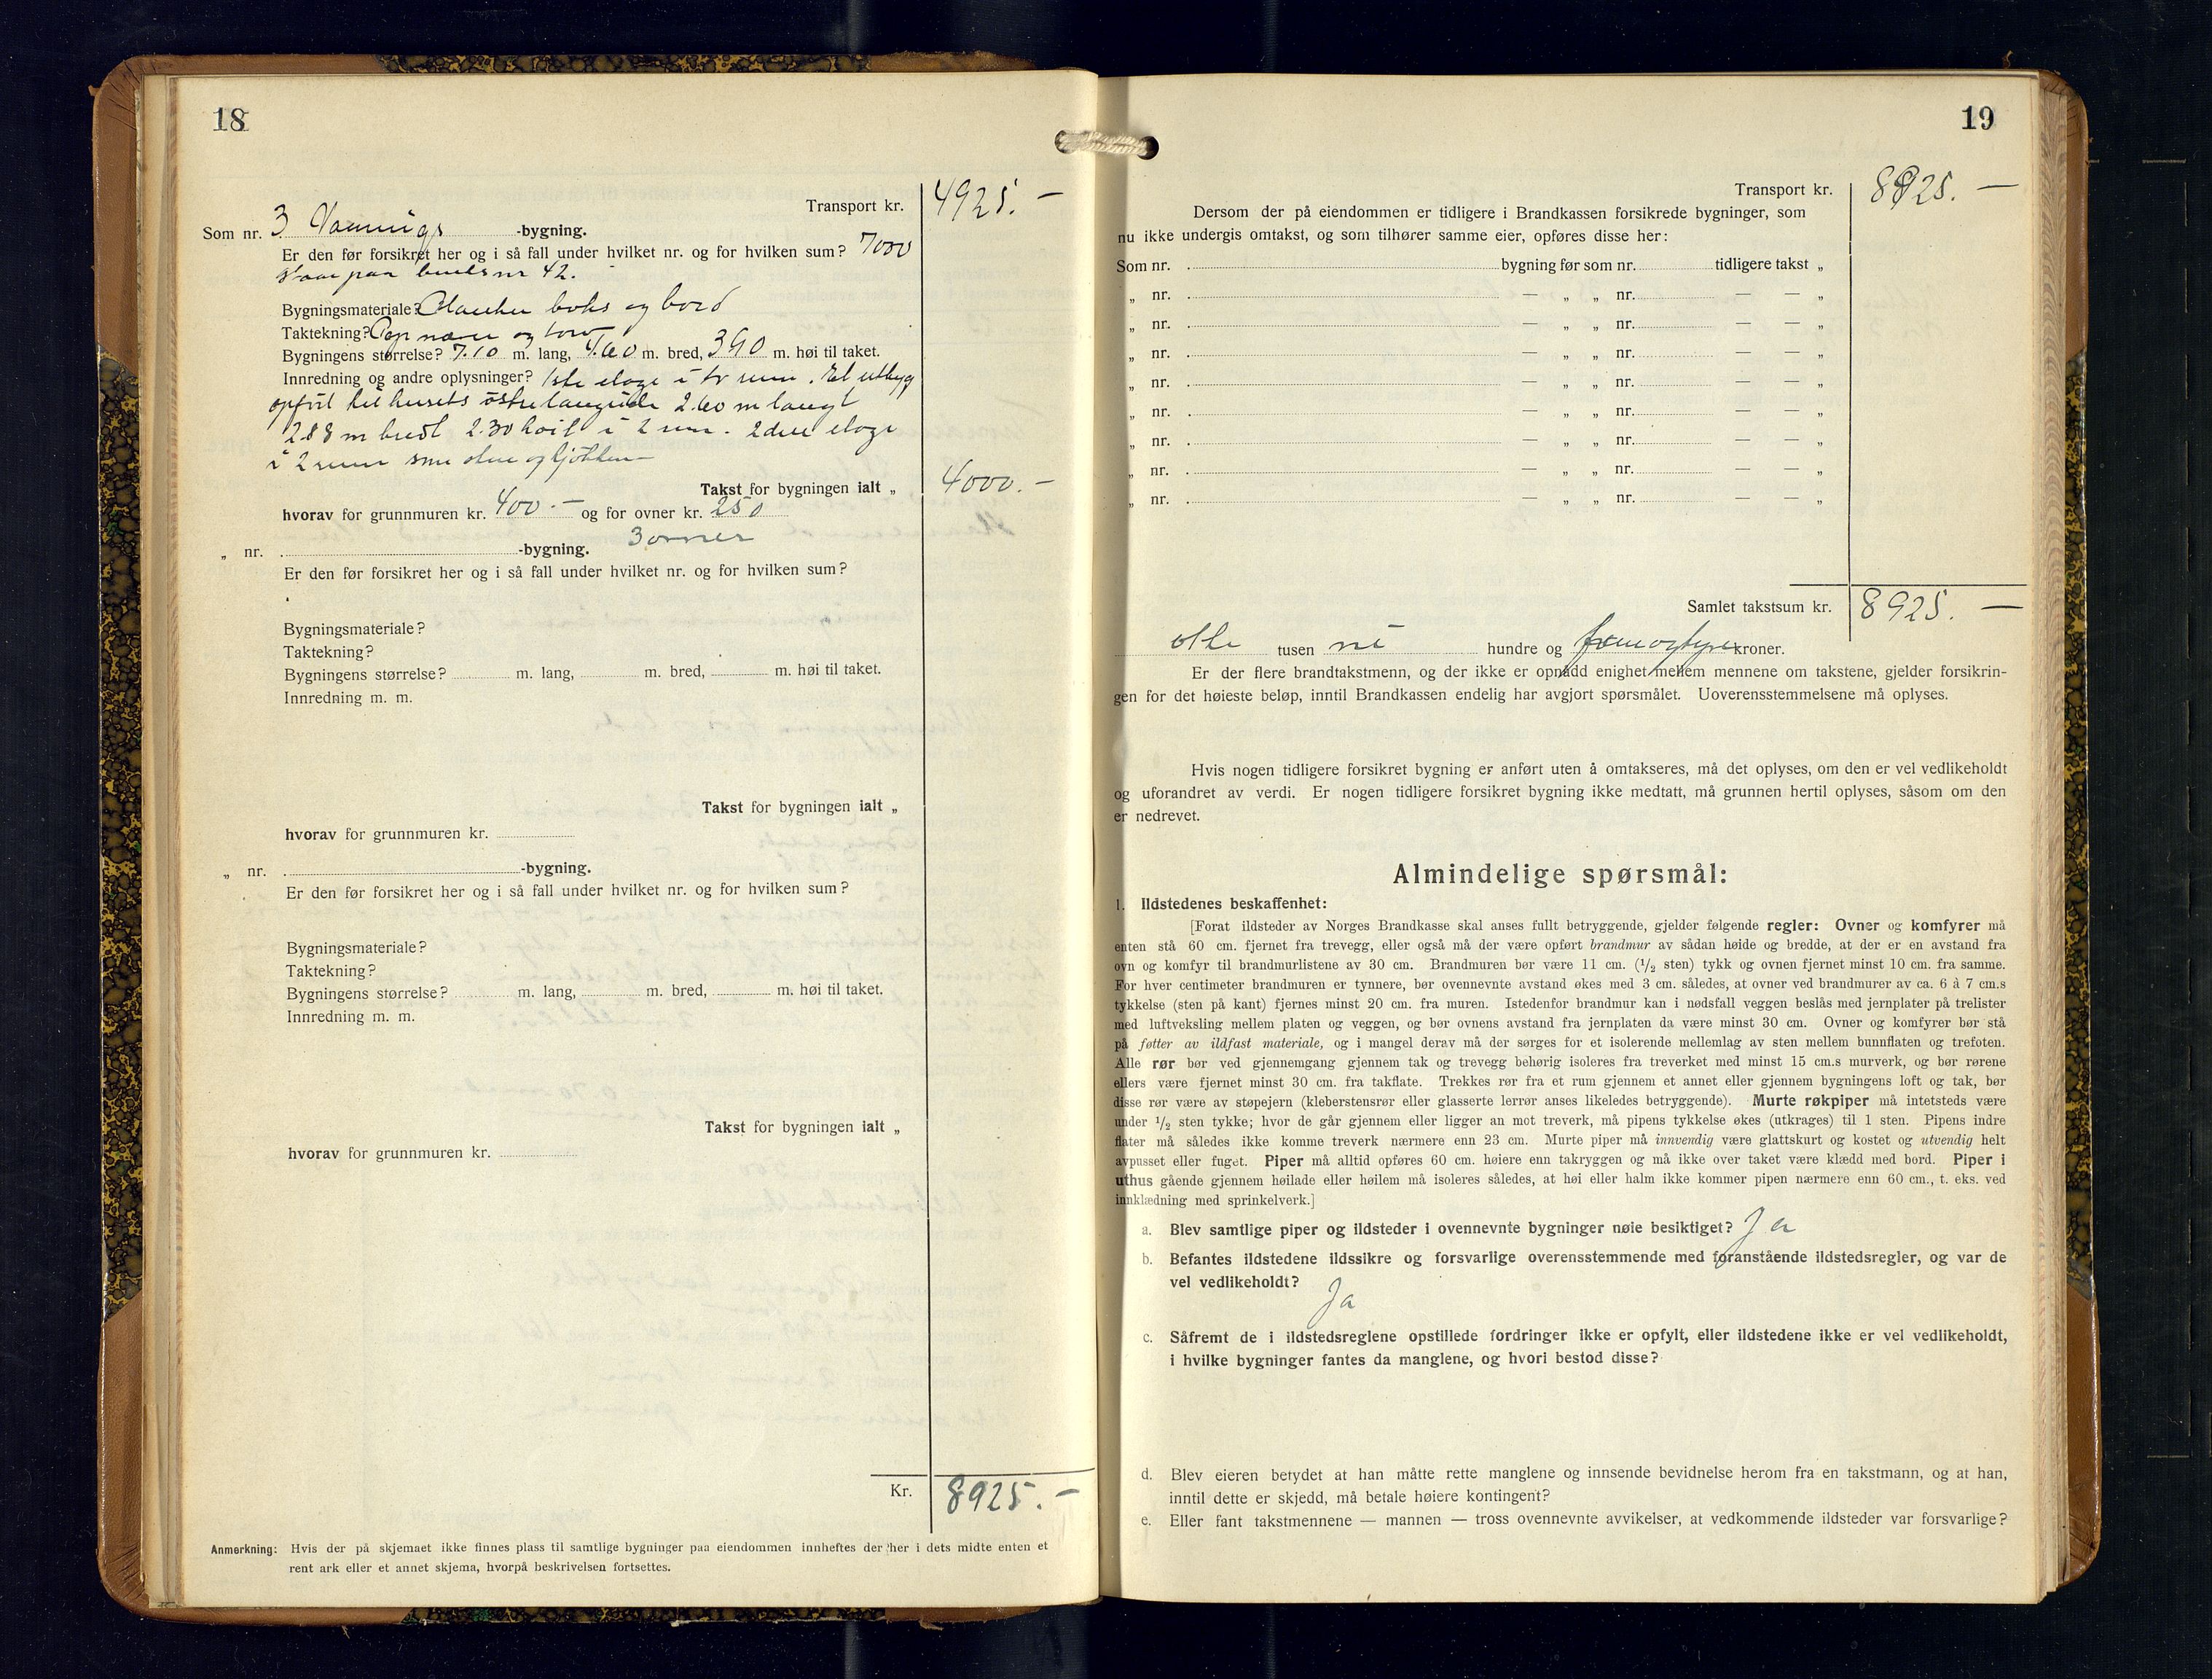 18
Transport kr. 4925.—
Som nr. 3 Vaanings -bygning.
Er den før forsikret her og i så fall under hvilket nr. og for hvilken sum? 7000
staar paa bruksnr 42.
Bygningsmateriale? Planker boks og bord
Taktekning? Pap næver og torv
Bygningens størrelse? 7.10 m. lang, 4.60 m. bred, 390 m. høi til taket.
Innredning og andre oplysninger? 1ste etage i to rum. Et utbyg
opført til husets østre langside 2.60 m langt
288 m bredt 2.30 høit i 2 rum. 2den etage
i 2 rum som stue og kjøkken—
Takst for bygningen ialt „ 4000.—
hvorav for grunnmuren kr. 400.— og for ovner kr. 250
3 ovner
„ nr. -bygning.
Er den før forsikret her og i så fall under hvilket nr. og for hvilken sum?
Bygningsmateriale?
Taktekning?
Bygningens størrelse? m. lang, m. bred, m. høi til taket.
Innredning m. m.
Takst for bygningen ialt „
hvorav for grunnmuren kr.
„ nr. -bygning.
Er den før forsikret her og i så fall under hvilket nr. og for hvilken sum?
Bygningsmateriale?
Taktekning?
Bygningens størrelse? m. lang, m. bred, m. høi til taket.
Innredning m. m.
Takst for bygningen ialt „
hvorav for grunnmuren kr.
Kr. 8925.—
Anmerkning: Hvis der på skjemaet ikke finnes plass til samtlige bygninger paa eiendommen innheftes der her i dets midte enten et
rent ark eller et annet skjema, hvorpå beskrivelsen fortsettes.
19
Transport kr. 8925.—
Dersom der på eiendommen er tidligere i Brandkassen forsikrede bygninger, som
nu ikke undergis omtakst, og som tilhører samme eier, opføres disse her:
Som nr. bygning før som nr. tidligere takst „
„ nr. — „ „ nr. — — „
„ nr. — „ „ nr. — — „
„ nr. — „ „ nr. — — „
„ nr. — „ „ nr. — — „
„ nr. — „ „ nr. — — „
„ nr. — „ „ nr. — — „
„ nr. — „ „ nr. — — „
„ nr. — „ „ nr. — — „
Samlet takstsum kr. 8925.—
otte tusen ni hundre og femogtyve kroner.
Er der flere brandtakstmenn, og der ikke er opnådd enighet mellem mennene om takstene, gjelder forsikrin-
gen for det høieste beløp, inntil Brandkassen endelig har avgjort spørsmålet. Uoverensstemmelsene må oplyses.
Hvis nogen tidligere forsikret bygning er anført uten å omtakseres, må det oplyses, om den er vel vedlikeholdt
og uforandret av verdi. Er nogen tidligere forsikret bygning ikke medtatt, må grunnen hertil oplyses, såsom om den
er nedrevet.
Almindelige spørsmål:
1. Ildstedenes beskaffenhet:
[Forat ildsteder av Norges Brandkasse skal anses fullt betryggende, gjelder følgende regler: Ovner og komfyrer må
enten stå 60 cm. fjernet fra trevegg, eller også må der være opført brandmur av sådan høide og bredde, at der er en avstand fra
ovn og komfyr til brandmurlistene av 30 cm. Brandmuren bør være 11 cm. (1/2 sten) tykk og ovnen fjernet minst 10 cm. fra samme.
For hver centimeter brandmuren er tynnere, bør ovennevnte avstand økes med 3 cm. således, at ovner ved brandmurer av ca. 6 à 7 cm.s
tykkelse (sten på kant) fjernes minst 20 cm. fra muren. Istedenfor brandmur kan i nødsfall veggen beslås med jernplater på trelister
med luftveksling mellem platen og veggen, og bør ovnens avstand fra jernplaten da være minst 30 cm. Ovner og komfyrer bør stå
på føtter av ildfast materiale, og i mangel derav må der sørges for et isolerende mellemlag av sten mellem bunnflaten og trefoten.
Alle rør bør ved gjennemgang gjennem tak og trevegg behørig isoleres fra treverket med minst 15 cm.s murverk, og bør rørene
ellers være fjernet minst 30 cm. fra takflate. Trekkes rør fra et rum gjennem et annet eller gjennem bygningens loft og tak, bør
disse rør være av støpejern (kleberstensrør eller glasserte lerrør anses likeledes betryggende). Murte røkpiper må intetsteds være
under 1/2 sten tykke; hvor de går gjennem eller ligger an mot treverk, må pipens tykkelse økes (utkrages) til 1 sten. Pipens indre
flater må således ikke komme treverk nærmere enn 23 cm. Murte piper må innvendig være glattskurt og kostet og utvendig helt
avpusset eller fuget. Piper må alltid opføres 60 cm. høiere enn takryggen og må ikke over taket være klædd med bord. Piper i
uthus gående gjennem høilade eller høilem må isoleres således, at høi eller halm ikke kommer pipen nærmere enn 60 cm., t. eks. ved
innklædning med sprinkelverk.]
a. Blev samtlige piper og ildsteder i ovennevnte bygninger nøie besiktiget? Ja
b. Befantes ildstedene ildssikre og forsvarlige overensstemmende med foranstående ildstedsregler, og var de
vel vedlikeholdt?
Ja
c. Såfremt de i ildstedsreglene opstillede fordringer ikke er opfylt, eller ildstedene ikke er vel vedlikeholdt,
i hvilke bygninger fantes da manglene, og hvori bestod disse?
d. Blev eieren betydet at han måtte rette manglene og innsende bevidnelse herom fra en takstmann, og at han,
inntil dette er skjedd, må betale høiere kontingent?
e. Eller fant takstmennene — mannen — tross ovennevnte avvikelser, at vedkommende ildsteder var forsvarlige?